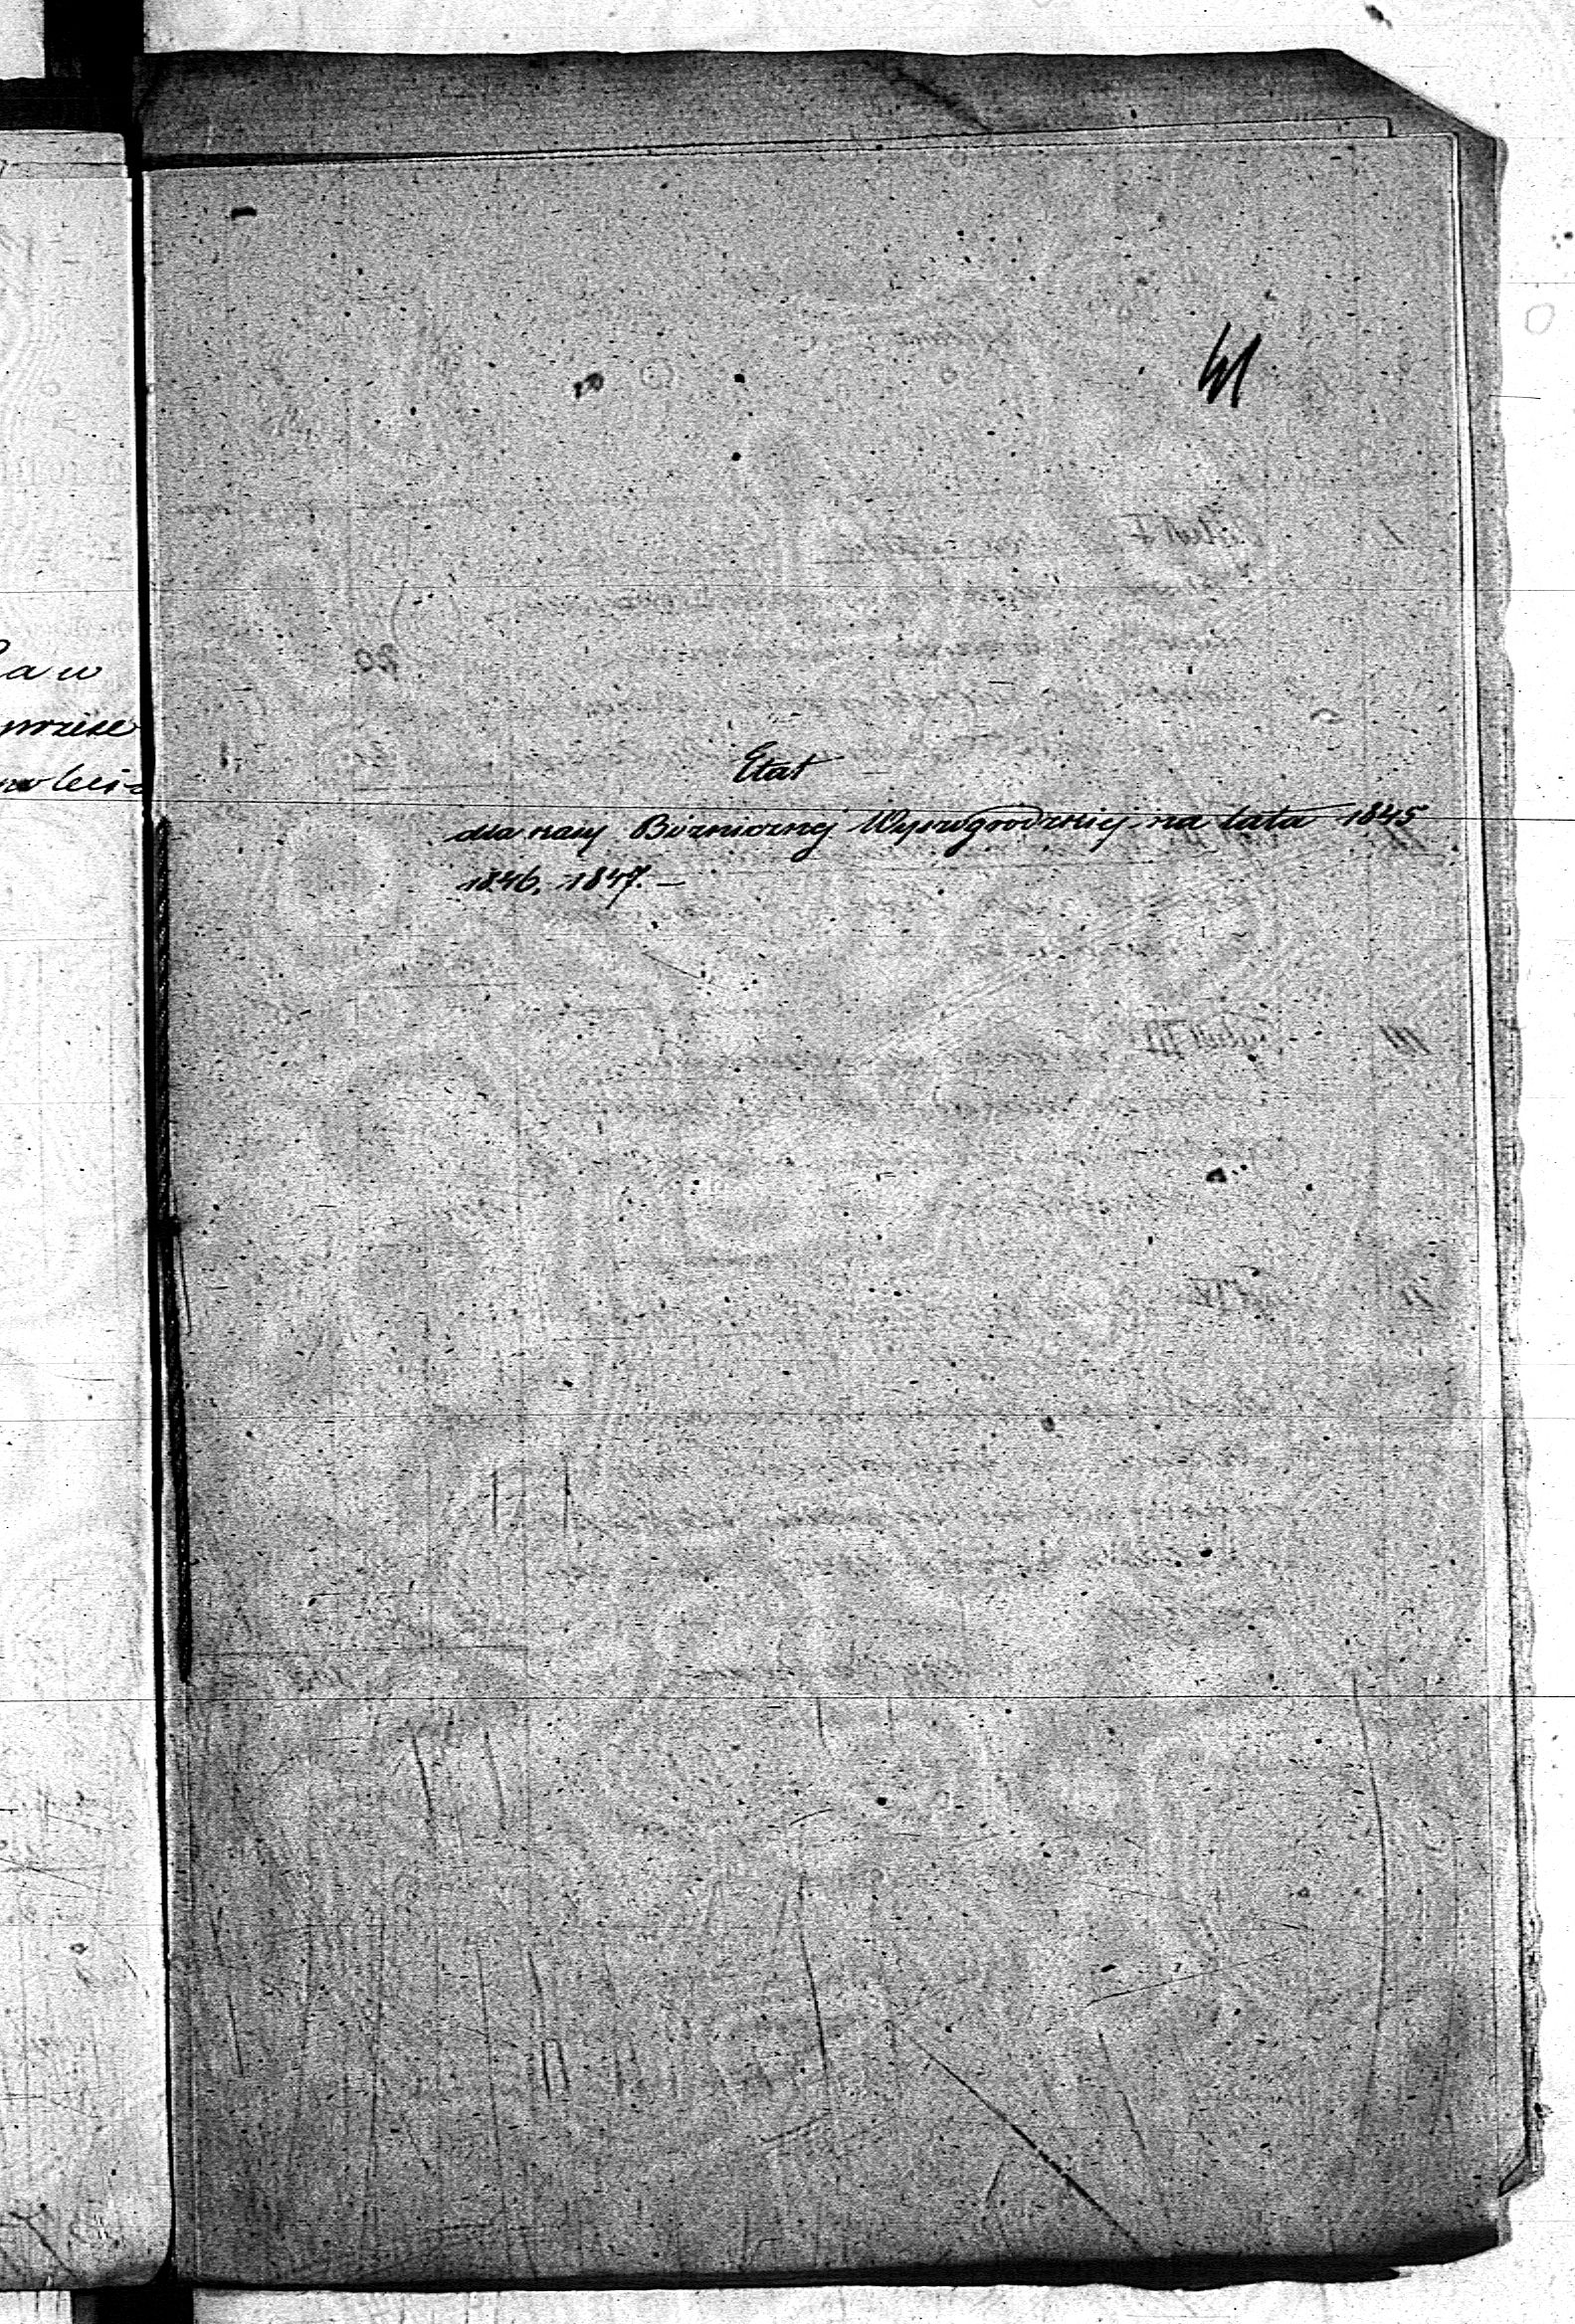 41
aw
przese
Etat
dla kassy Bóżniczney Wyszogrodzkiey na lata 1845
1846. 1847. —